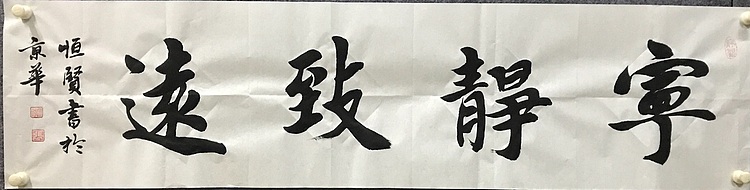 寧靜致遠
恒賢書於
京華